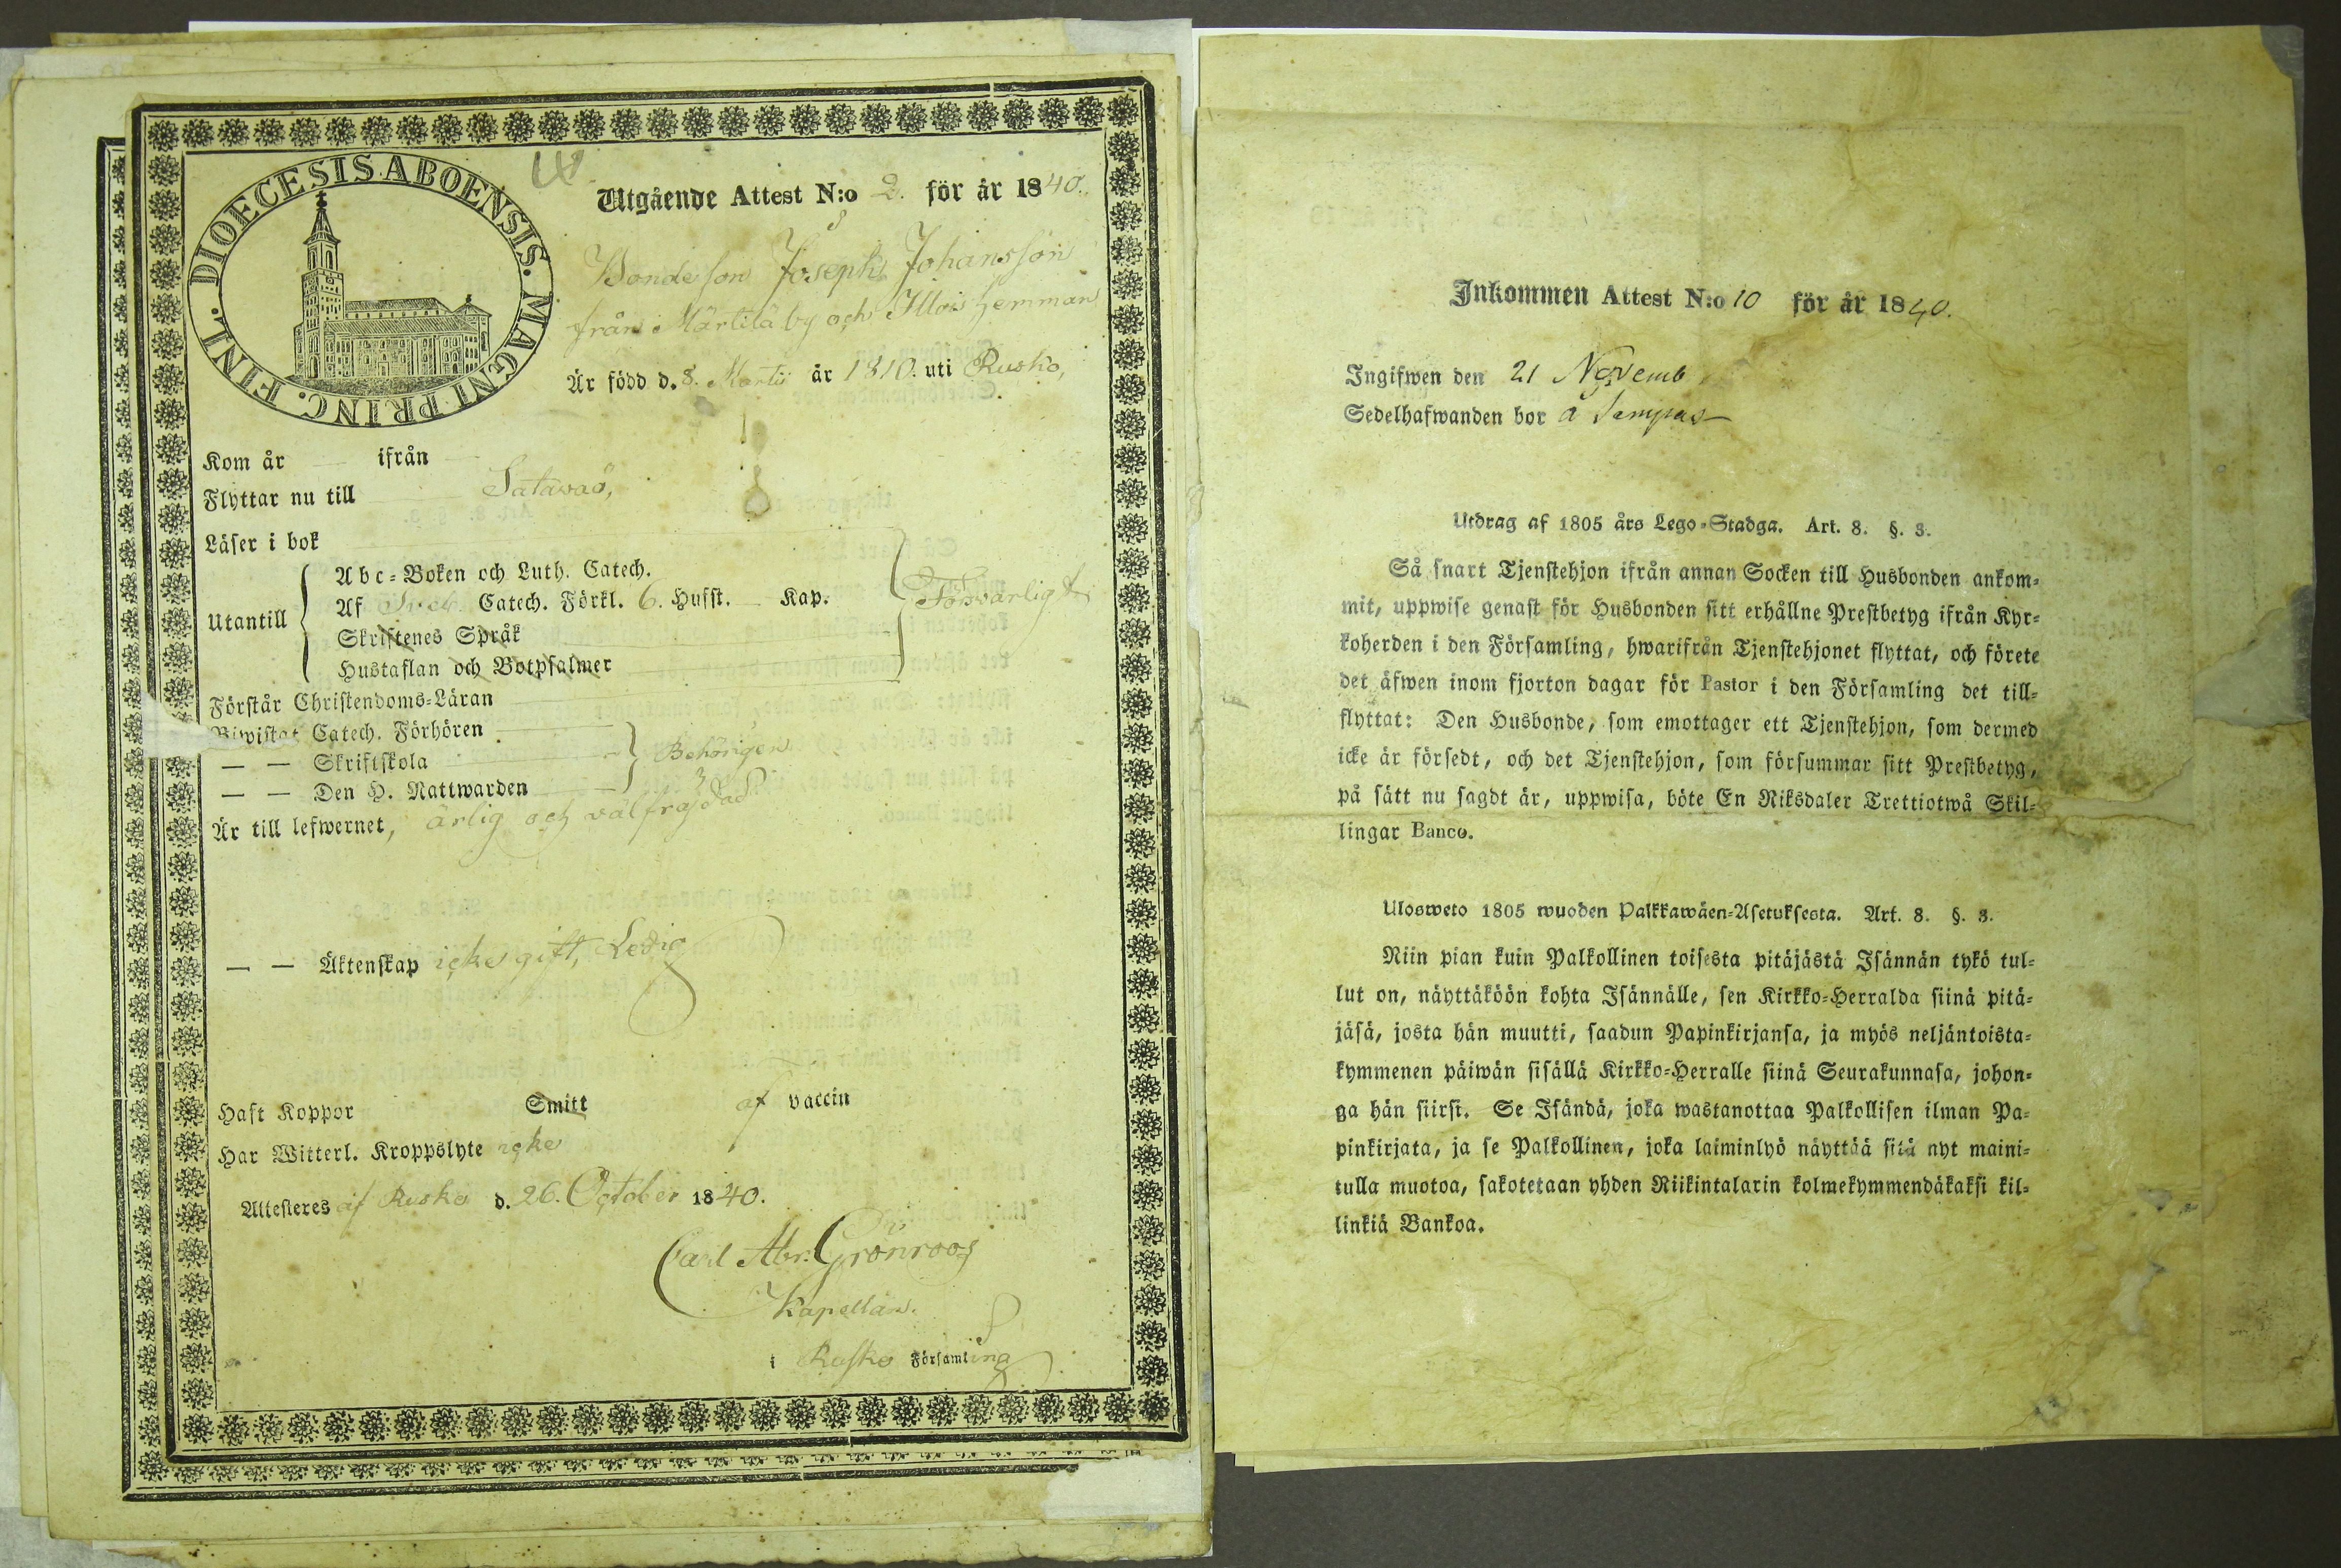 DIOECESIS ABOENSIS. MAGNI PRINC. FINL.
Utgående Attest N:o 2. för år 1840.
Bondeson Joseph Johansson
från Märtilä by och Illois hemman
Är född d. 8. Martii år 1810. uti Rusko,
Kom år — ifrån —
Flyttar nu till Satavaö,
Läser i bok
Utantill
Abc-Boken och Luth. Catech.
Af Sveb. Catech. Förkl. 6. Hufst. — Kap.
Skriftenes Språk
Hustaflan och Botpsalmer
Försvarligt
Förstår Christendoms-Läran
Biwistat Catech. Förhören
— — Skriftskola
— — Den H. Nattwarden
Behörigen
Är till lefwernet, ärlig och välfrägdad
— — Äktenskap icke gift, Ledig
Haft Koppor Smitt af vaccin
Har Witterl. Kroppslyte icke
Attesteres af Rusko d. 26. October 1840.
Carl Abr. Grönroos
Kapellan.
i Rusko Församling
Inkommen Attest N:o 10 för år 1840.
Ingifwen den 21 Novemb
Sedelhafwanden bor å
Utdrag af 1805 års Lego-Stadga. Art. 8. §. 3.
Så snart Tjenstehjon ifrån annan Socken till Husbonden ankom-
mit, uppwise genast för Husbonden sitt erhållne Prestbetyg ifrån Kyr-
koherden i den Församling, hwarifrån Tjenstehjonet flyttat, och förete
det äfwen inom fjorton dagar för Pastor i den Församling det till-
flyttat: Den Husbonde, som emottager ett Tjenstehjon, som dermed
icke är försedt, och det Tjenstehjon, som försummar sitt Prestbetyg,
på sätt nu sagdt är, uppwisa, böte En Riksdaler Trettiotwå Skil-
lingar Banco.
Ulosweto 1805 wuoden Palkkawäen-Asetuksesta. Art. 8. §. 3.
Niin pian kuin Palkollinen toisesta pitäjästä Isännän tykö tul-
lut on, näyttäköön kohta Isännälle, sen Kirkko-Herralda siinä pitä-
jäsä, josta hän muutti, saadun Papinkirjansa, ja myös neljäntoista-
kymmenen päiwän sisällä Kirkko-Herralle siinä Seurakunnasa, johon-
ga hän siirsi. Se Isändä, joka wastanottaa Palkollisen ilman Pa-
pinkirjata, ja se Palkollinen, joka laiminlyö näyttää sitä nyt maini-
tulla muotoa, sakotetaan yhden Riikintalarin kolmekymmendäkaksi kil-
linkiä Bankoa.